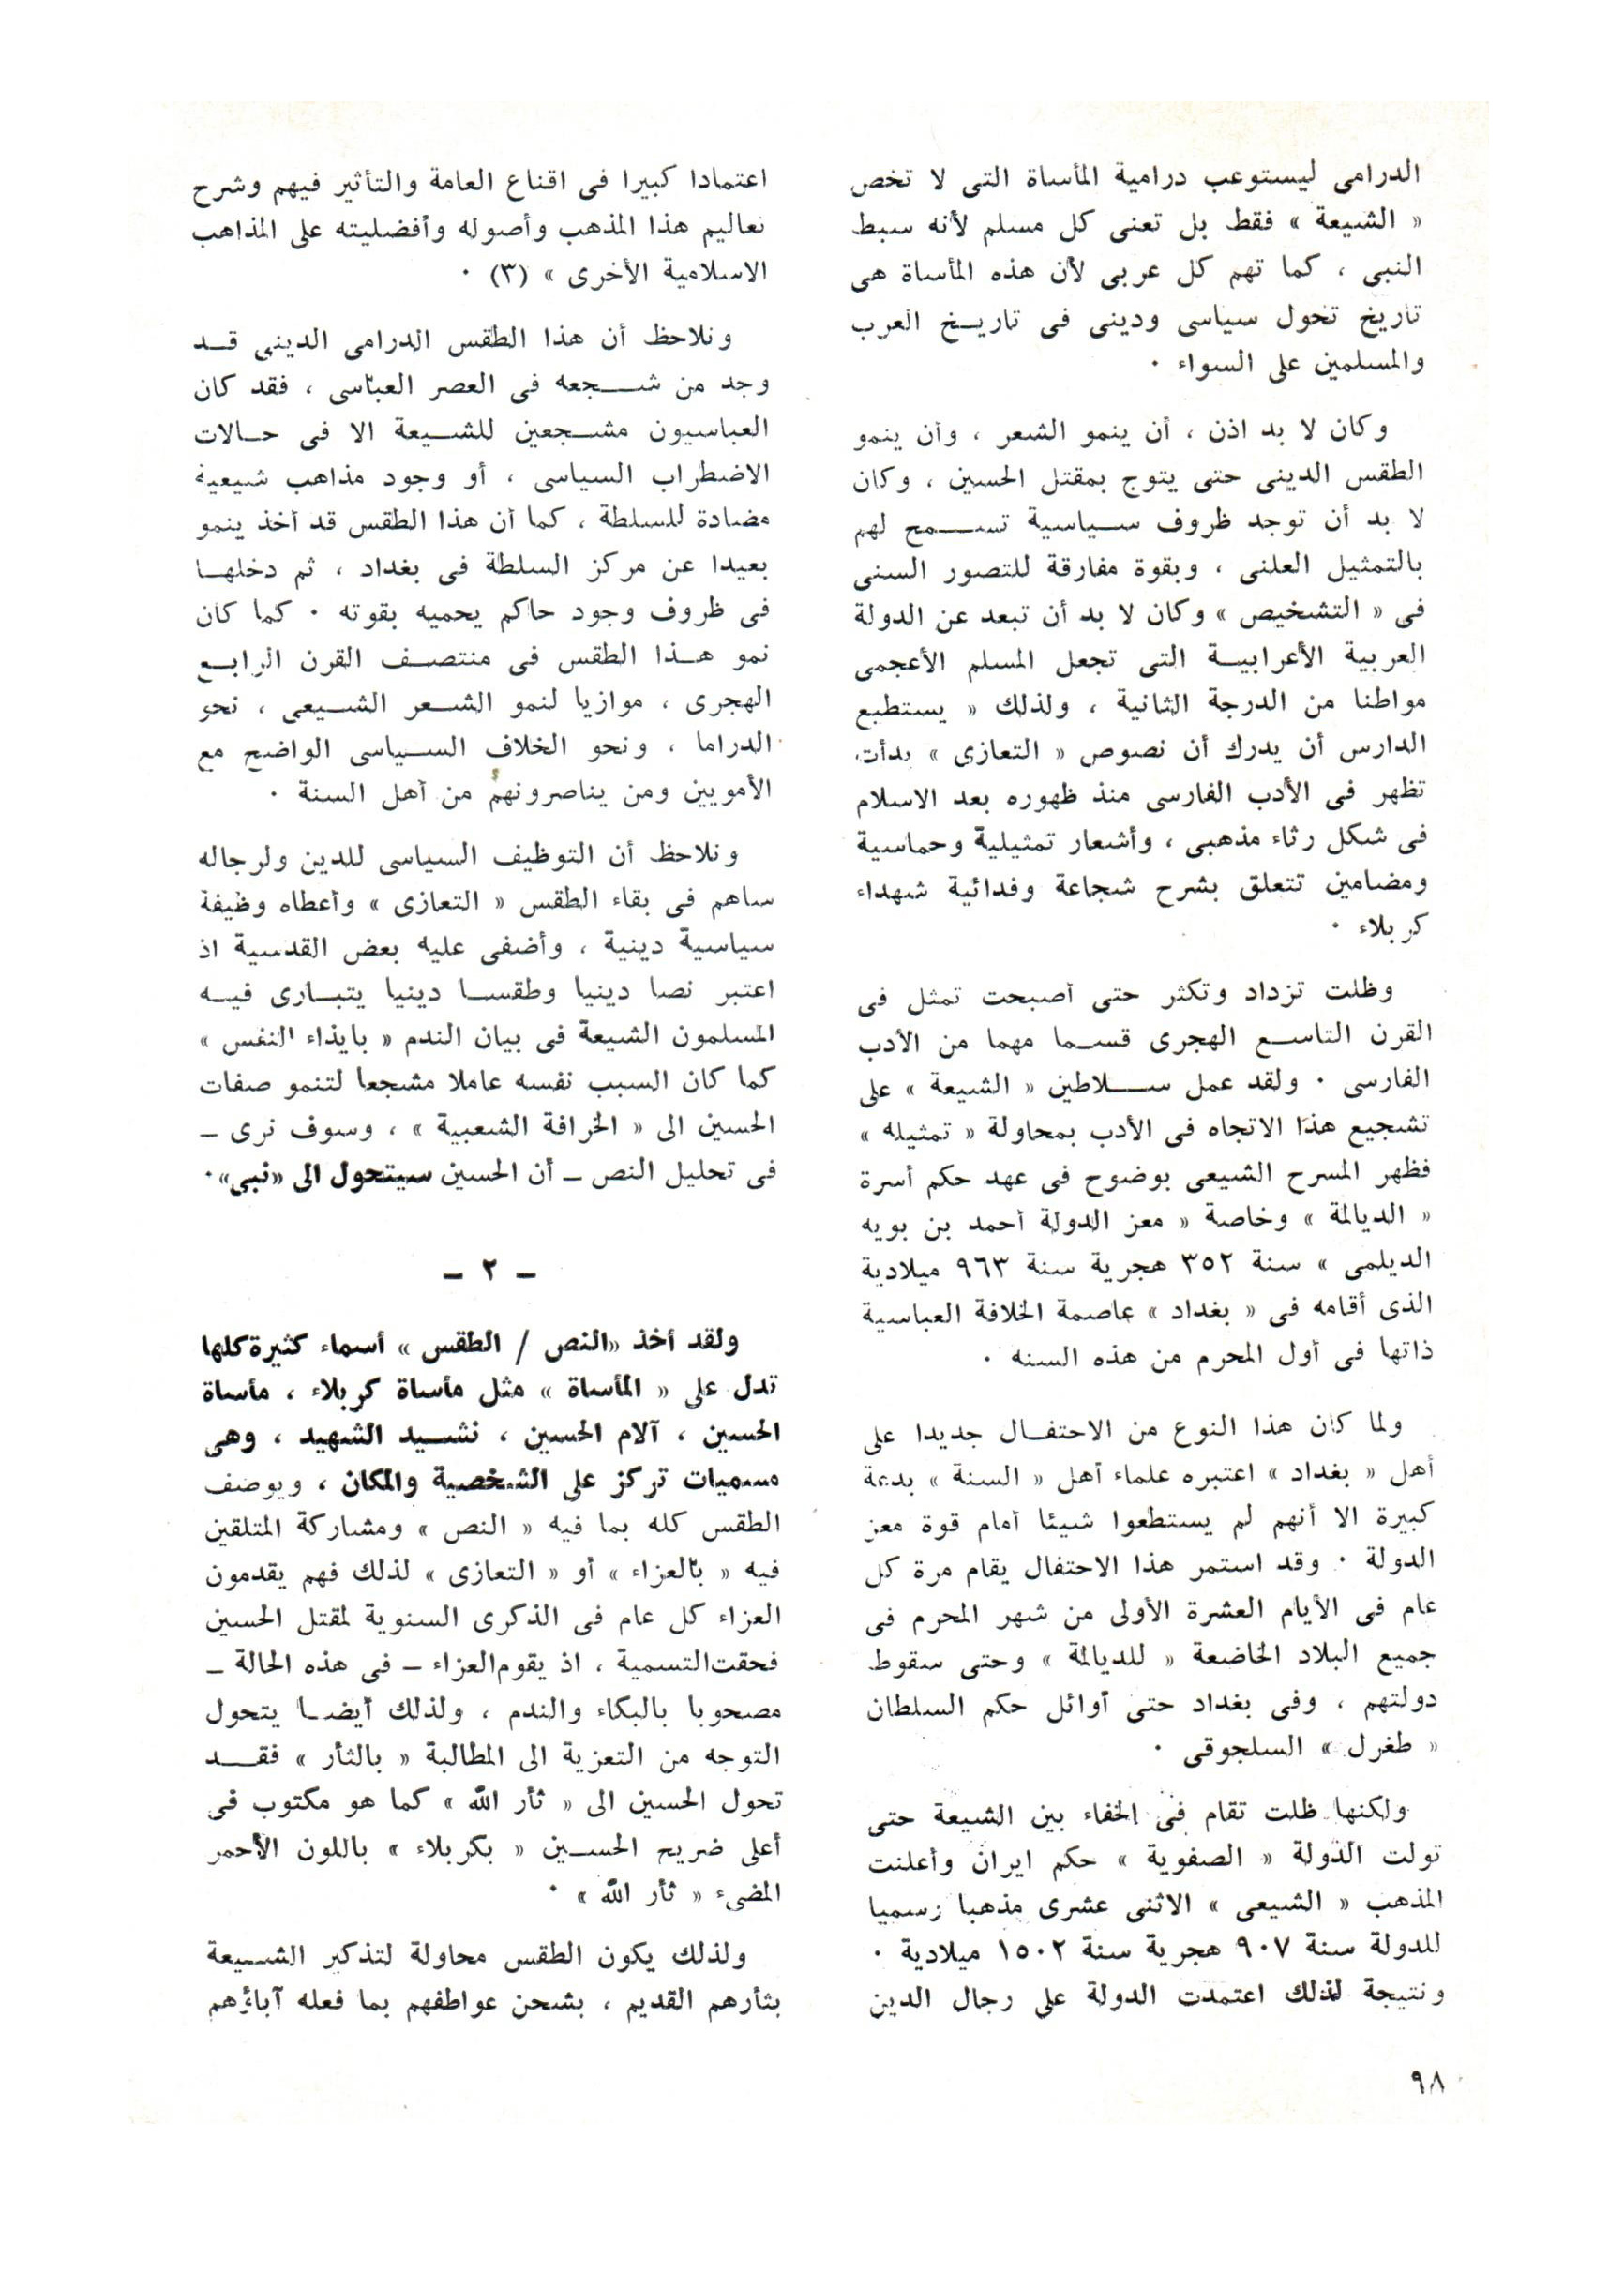 الدرامى ليستوعب درامية المأساة التى لا تخص
« الشيعة » فقط بل تعنى كل مسلم لأنه سبط
النبى ، كما تهم كل عربى لأن هذه المأساة هى
تاريخ تحول سياسى ودينى فى تاريخ العرب
والمسلمين على السواء ٠
وكان لا بد اذن ، أن ينمو الشعر ، وأن ينمو
الطقس الدينى حتى يتوج بمقتل الحسين ، وكان
لا بد أن توجد ظروف سياسية تسمح لهم
بالتمثيل العلنى ، وبقوة مفارقة للتصور السنى
فى « التشخيص » وكان لا بد أن تبعد عن الدولة
العربية الأعرابية التى تجعل المسلم الأعجمى
مواطنا من الدرجة الثانية ، ولذلك « يستطيع
الدارس أن يدرك أن نصوص « التعازى » بدأت
تظهر فى الأدب الفارسى منذ ظهوره بعد الاسلام
فى شكل رثاء مذهبى ، وأشعار تمثيلية وحماسية
ومضامين تتعلق بشرح شجاعة وفدائية شهداء
كربلاء ٠
وظلت تزداد وتكثر حتى أصبحت تمثل فى
القرن التاسع الهجرى قسما مهما من الأدب
الفارسى ٠ ولقد عمل سلاطين « الشيعة » على
تشجيع هذا الاتجاه فى الأدب بمحاولة « تمثيله »
فظهر المسرح الشيعى بوضوح فى عهد حكم أسرة
« الديالمة » وخاصة « معز الدولة أحمد بن بويه
الديلمى » سنة ٣٥٢ هجرية سنة ٩٦٣ ميلادية
الذى أقامه فى « بغداد » عاصمة الخلافة العباسية
ذاتها فى أول المحرم من هذه السنه ٠
ولما كان هذا النوع من الاحتفال جديدا على
أهل « بغداد » اعتبره علماء أهل « السنة » بدعة
كبيرة الا أنهم لم يستطعوا شيئا أمام قوة معز
الدولة ٠ وقد استمر هذا الاحتفال يقام مرة كل
عام فى الأيام العشرة الأولى من شهر المحرم فى
جميع البلاد الخاضعة « للديالمة » وحتى سقوط
دولتهم ، وفى بغداد حتى أوائل حكم السلطان
« طغرل » السلجوقى ٠
ولكنها ظلت تقام فى الخفاء بين الشيعة حتى
تولت الدولة « الصفوية » حكم ايران وأعلنت
المذهب « الشيعى » الاثنى عشرى مذهبا رسميا
للدولة سنة ٩٠٧ هجرية سنة ١٥٠٢ ميلادية ٠
ونتيجة لذلك اعتمدت الدولة على رجال الدين
اعتمادا كبيرا فى اقناع العامة والتأثير فيهم وشرح
تعاليم هذا المذهب وأصوله وأفضليته على المذاهب
الاسلامية الأخرى » (٣) ٠
ونلاحظ أن هذا الطقس الدرامى الدينى قد
وجد من شجعه فى العصر العباسى ، فقد كان
العباسيون مشجعين للشيعة الا فى حالات
الاضطراب السياسى ، أو وجود مذاهب شيعية
مضادة للسلطة ، كما أن هذا الطقس قد أخذ ينمو
بعيدا عن مركز السلطة فى بغداد ، ثم دخلها
فى ظروف وجود حاكم يحميه بقوته ٠ كما كان
نمو هذا الطقس فى منتصف القرن الرابع
الهجرى ، موازيا لنمو الشعر الشيعى ، نحو
الدراما ، ونحو الخلاف السياسى الواضح مع
الأمويين ومن يناصرونهم من أهل السنة ٠
ونلاحظ أن التوظيف السياسى للدين ولرجاله
ساهم فى بقاء الطقس « التعازى » وأعطاه وظيفة
سياسية دينية ، وأضفى عليه بعض القدسية اذ
اعتبر نصا دينيا وطقسا دينيا يتبارى فيه
المسلمون الشيعة فى بيان الندم « بايذاء النفس »
كما كان السبب نفسه عاملا مشجعا لتنمو صفات
الحسين الى « الخرافة الشعبية » ، وسوف نرى –
فى تحليل النص – أن الحسين سيتحول الى «نبى» ٠
– ٢ –
ولقد أخذ «النص / الطقس» أسماء كثيرة كلها
تدل على « المأساة » مثل مأساة كربلاء ، مأساة
الحسين ، آلام الحسين ، نشيد الشهيد ، وهى
مسميات تركز على الشخصية والمكان ، ويوصف
الطقس كله بما فيه « النص » ومشاركة المتلقين
فيه « بالعزاء » أو « التعازى » لذلك فهم يقدمون
العزاء كل عام فى الذكرى السنوية لمقتل الحسين
فحقت التسمية ، اذ يقوم العزاء – فى هذه الحالة –
مصحوبا بالبكاء والندم ، ولذلك أيضا يتحول
التوجه من التعزية الى المطالبة « بالثأر » فقد
تحول الحسين الى « ثأر الله » كما هو مكتوب فى
أعلى ضريح الحسين « بكربلاء » باللون الأحمر
المضىء « ثأر الله » ٠
ولذلك يكون الطقس محاولة لتذكير الشيعة
بثأرهم القديم ، بشحن عواطفهم بما فعله آباؤهم
٩٨